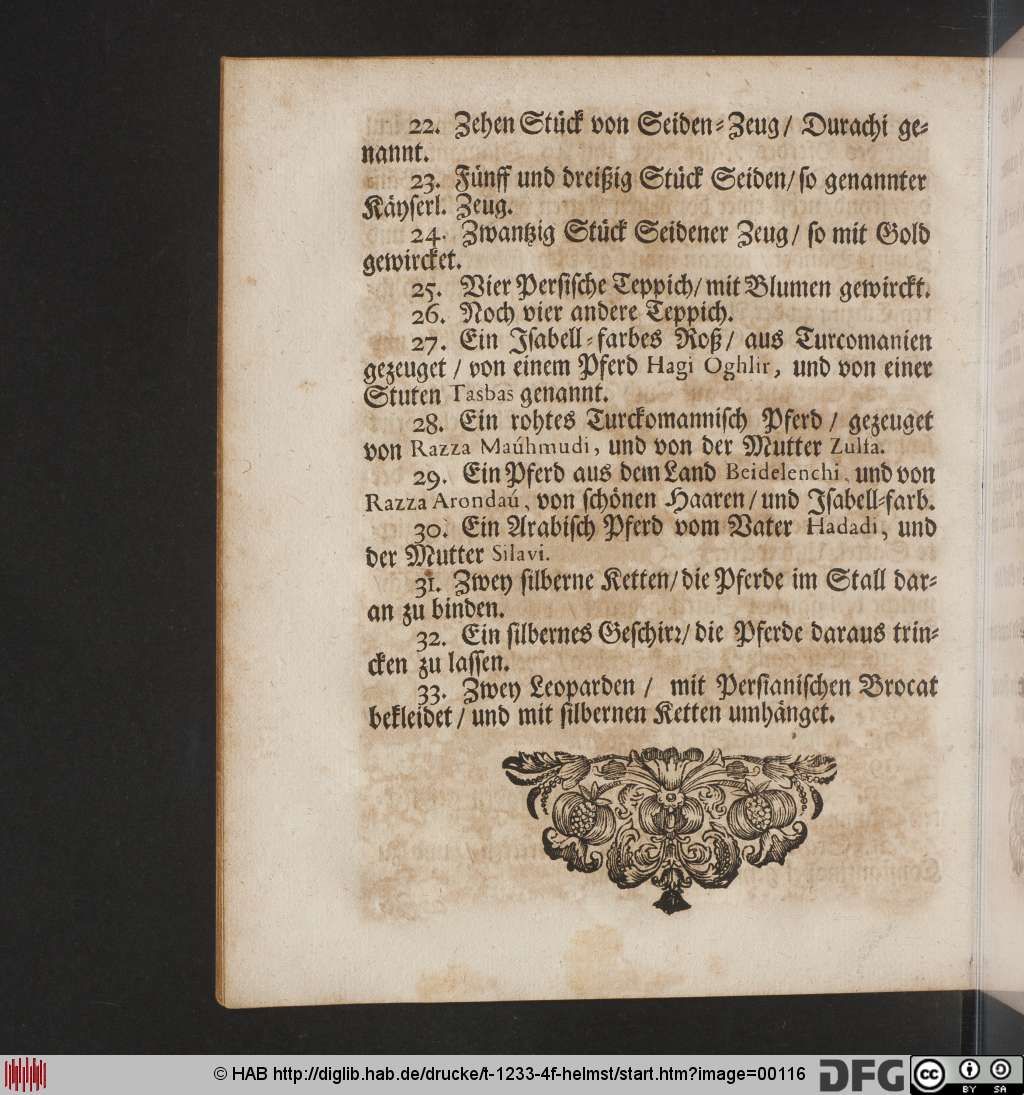 22. Zehen Stück von Seiden-Zeug/ Durachi ge-
nannt.
23. Fünff und dreißig Stück Seiden/ so genannter
Käyserl. Zeug.
24. Zwantzig Stück Seidener Zeug/ so mit Gold
gewircket.
25. Vier Persische Teppich/ mit Blumen gewirckt.
26. Noch vier andere Teppich.
27. Ein Isabell-farbes Roß/ aus Turcomanien
gezeuget / von einem Pferd Hagi Oghlir, und von einer
Stuten Tasbas genannt.
28. Ein rohtes Turckomannisch Pferd / gezeuget
von Razza Maúhmudi, und von der Mutter Zulfa.
29. Ein Pferd aus dem Land Beidelenchi, und von
Razza Arondaú, von schönen Haaren/ und Isabell-farb.
30. Ein Arabisch Pferd vom Vater Hadadi, und
der Mutter Silavi.
31. Zwey silberne Ketten/ die Pferde im Stall dar-
an zu binden.
32. Ein silbernes Geschirr/ die Pferde daraus trin-
cken zu lassen.
33. Zwey Leoparden / mit Persianischen Brocat
bekleidet / und mit silbernen Ketten umhänget.
© HAB http://diglib.hab.de/drucke/t-1233-4f-helmst/start.htm?image=00116
DFG
cc BY SA